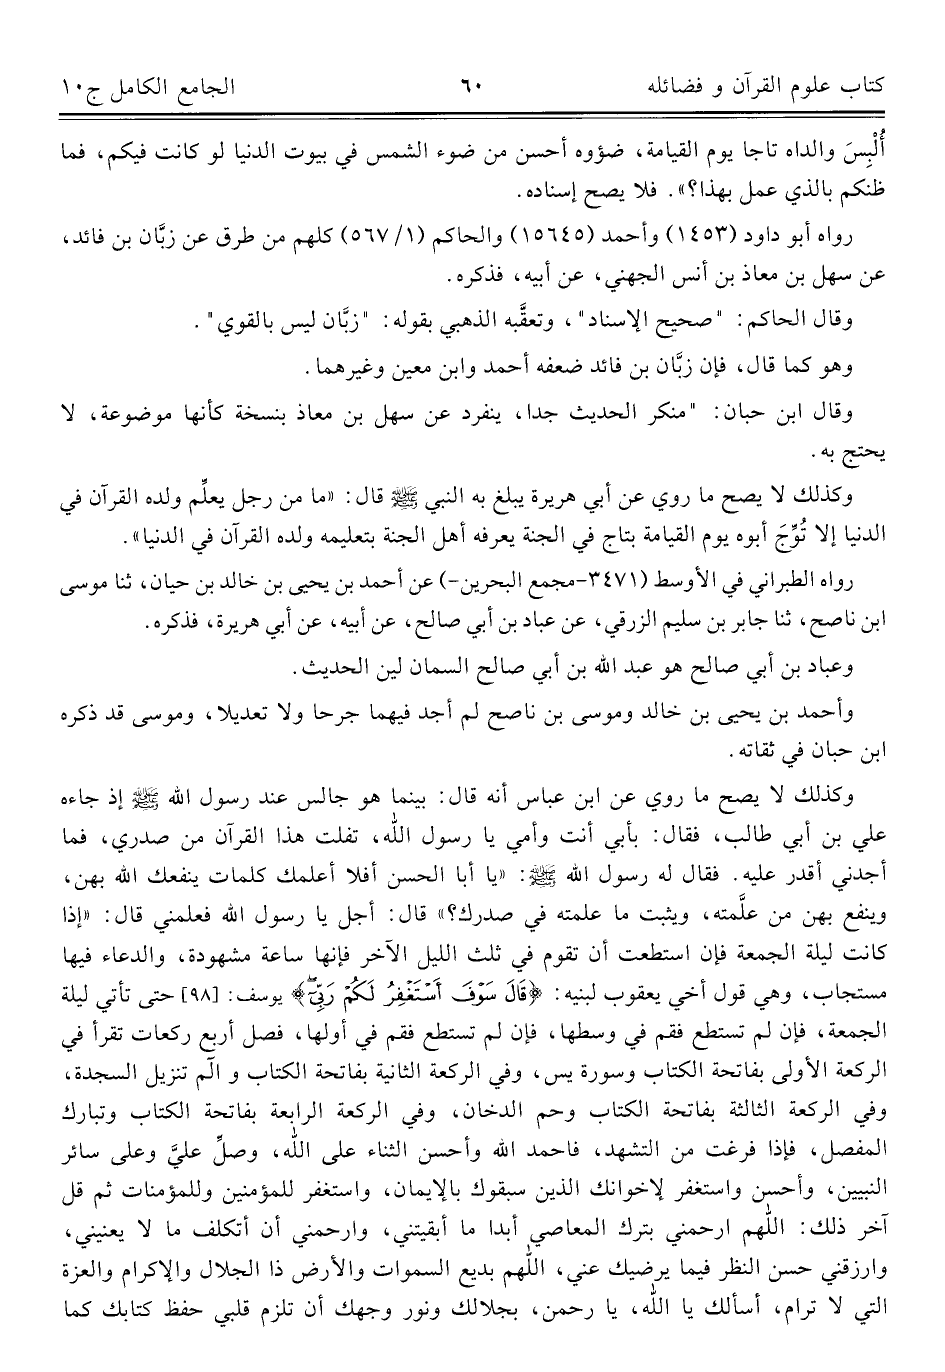 كتاب علوم القرآن و فضائله ٦٠ الجامع الكامل ج١٠
أُلْبِسَ والداه تاجا يوم القيامة، ضوؤه أحسن من ضوء الشمس في بيوت الدنيا لو كانت فيكم، فما
ظنكم بالذي عمل بهذا؟». فلا يصح إسناده.
رواه أبو داود (١٤٥٣) وأحمد (١٥٦٤٥) والحاكم (١/ ٥٦٧) كلهم من طرق عن زبَّان بن فائد،
عن سهل بن معاذ بن أنس الجهني، عن أبيه، فذكره.
وقال الحاكم: "صحيح الإسناد"، وتعقَّبه الذهبي بقوله: "زبَّان ليس بالقوي".
وهو كما قال، فإن زبَّان بن فائد ضعفه أحمد وابن معين وغيرهما.
وقال ابن حبان: "منكر الحديث جدا، ينفرد عن سهل بن معاذ بنسخة كأنها موضوعة، لا
يحتج به.
وكذلك لا يصح ما روي عن أبي هريرة يبلغ به النبي ﷺ قال: «ما من رجل يعلِّم ولده القرآن في
الدنيا إلا تُوِّجَ أبوه يوم القيامة بتاج في الجنة يعرفه أهل الجنة بتعليمه ولده القرآن في الدنيا».
رواه الطبراني في الأوسط (٣٤٧١-مجمع البحرين-) عن أحمد بن يحيى بن خالد بن حيان، ثنا موسى
ابن ناصح، ثنا جابر بن سليم الزرقي، عن عباد بن أبي صالح، عن أبيه، عن أبي هريرة، فذكره.
وعباد بن أبي صالح هو عبد الله بن أبي صالح السمان لين الحديث.
وأحمد بن يحيى بن خالد وموسى بن ناصح لم أجد فيهما جرحا ولا تعديلا، وموسى قد ذكره
ابن حبان في ثقاته.
وكذلك لا يصح ما روي عن ابن عباس أنه قال: بينما هو جالس عند رسول الله ﷺ إذ جاءه
علي بن أبي طالب، فقال: بأبي أنت وأمي يا رسول الله، تفلت هذا القرآن من صدري، فما
أجدني أقدر عليه. فقال له رسول الله ﷺ: «يا أبا الحسن أفلا أعلمك كلمات ينفعك الله بهن،
وينفع بهن من علَّمته، ويثبت ما علمته في صدرك؟» قال: أجل يا رسول الله فعلمني قال: «إذا
كانت ليلة الجمعة فإن استطعت أن تقوم في ثلث الليل الآخر فإنها ساعة مشهودة، والدعاء فيها
مستجاب، وهي قول أخي يعقوب لبنيه: ﴿قَالَ سَوْفَ أَسْتَغْفِرُ لَكُمْ رَبِّيٓ﴾ يوسف: [٩٨] حتى تأتي ليلة
الجمعة، فإن لم تستطع فقم في وسطها، فإن لم تستطع فقم في أولها، فصل أربع ركعات تقرأ في
الركعة الأولى بفاتحة الكتاب وسورة يس، وفي الركعة الثانية بفاتحة الكتاب و الٓم تنزيل السجدة،
وفي الركعة الثالثة بفاتحة الكتاب وحم الدخان، وفي الركعة الرابعة بفاتحة الكتاب وتبارك
المفصل، فإذا فرغت من التشهد، فاحمد الله وأحسن الثناء على الله، وصلِّ عليَّ وعلى سائر
النبيين، وأحسن واستغفر لإخوانك الذين سبقوك بالإيمان، واستغفر للمؤمنين وللمؤمنات ثم قل
آخر ذلك: اللهم ارحمني بترك المعاصي أبدا ما أبقيتني، وارحمني أن أتكلف ما لا يعنيني،
وارزقني حسن النظر فيما يرضيك عني، اللهم بديع السموات والأرض ذا الجلال والإكرام والعزة
التي لا ترام، أسألك يا الله، يا رحمن، بجلالك ونور وجهك أن تلزم قلبي حفظ كتابك كما